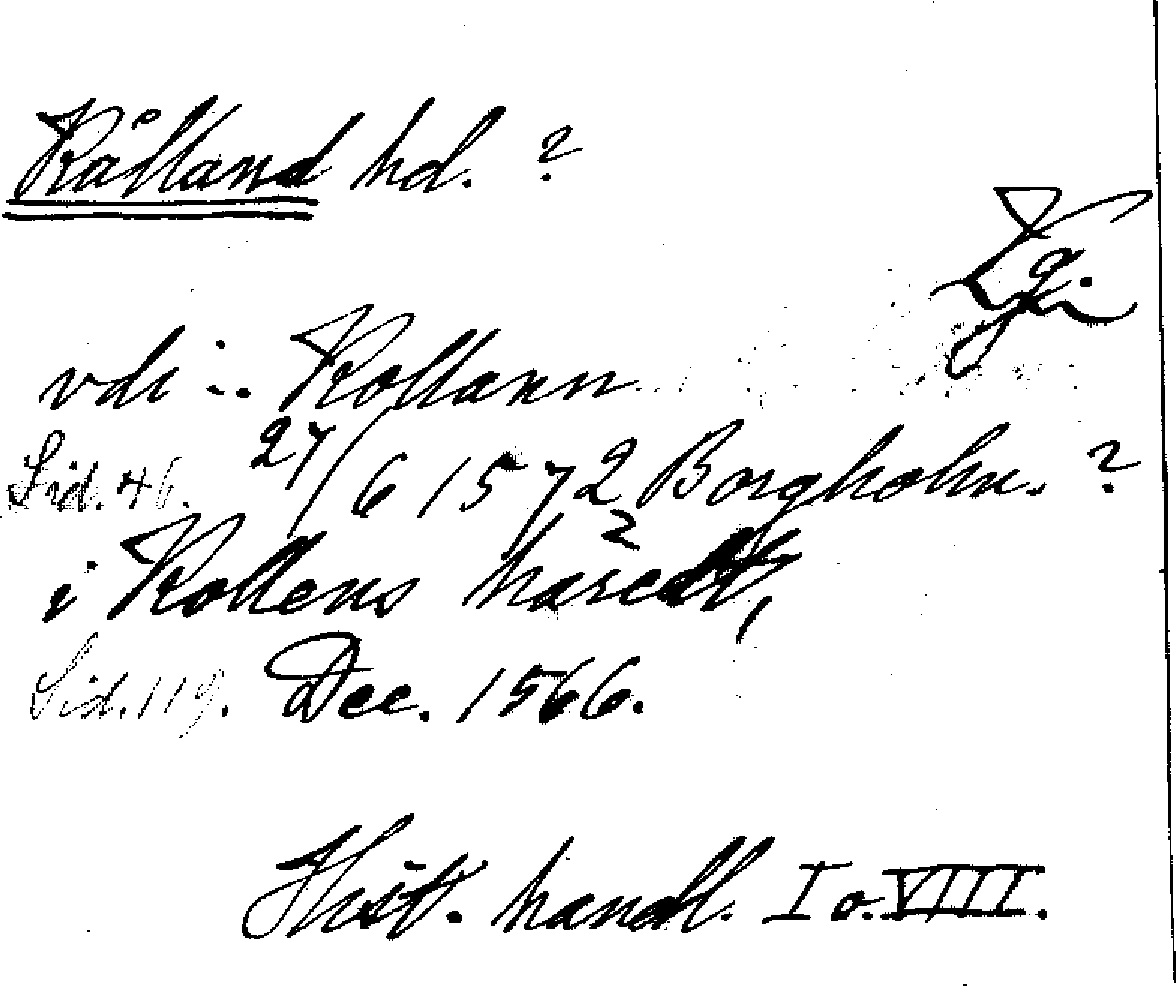 Kålland hd. ?
Vg.
vdi -.. Kollann
Sid. 46. 27/6 1572 Borgholm. ?
i Kollens haredt, ?
Sid. 119. Dec. 1566.
Hist. handl. I o. VIII.